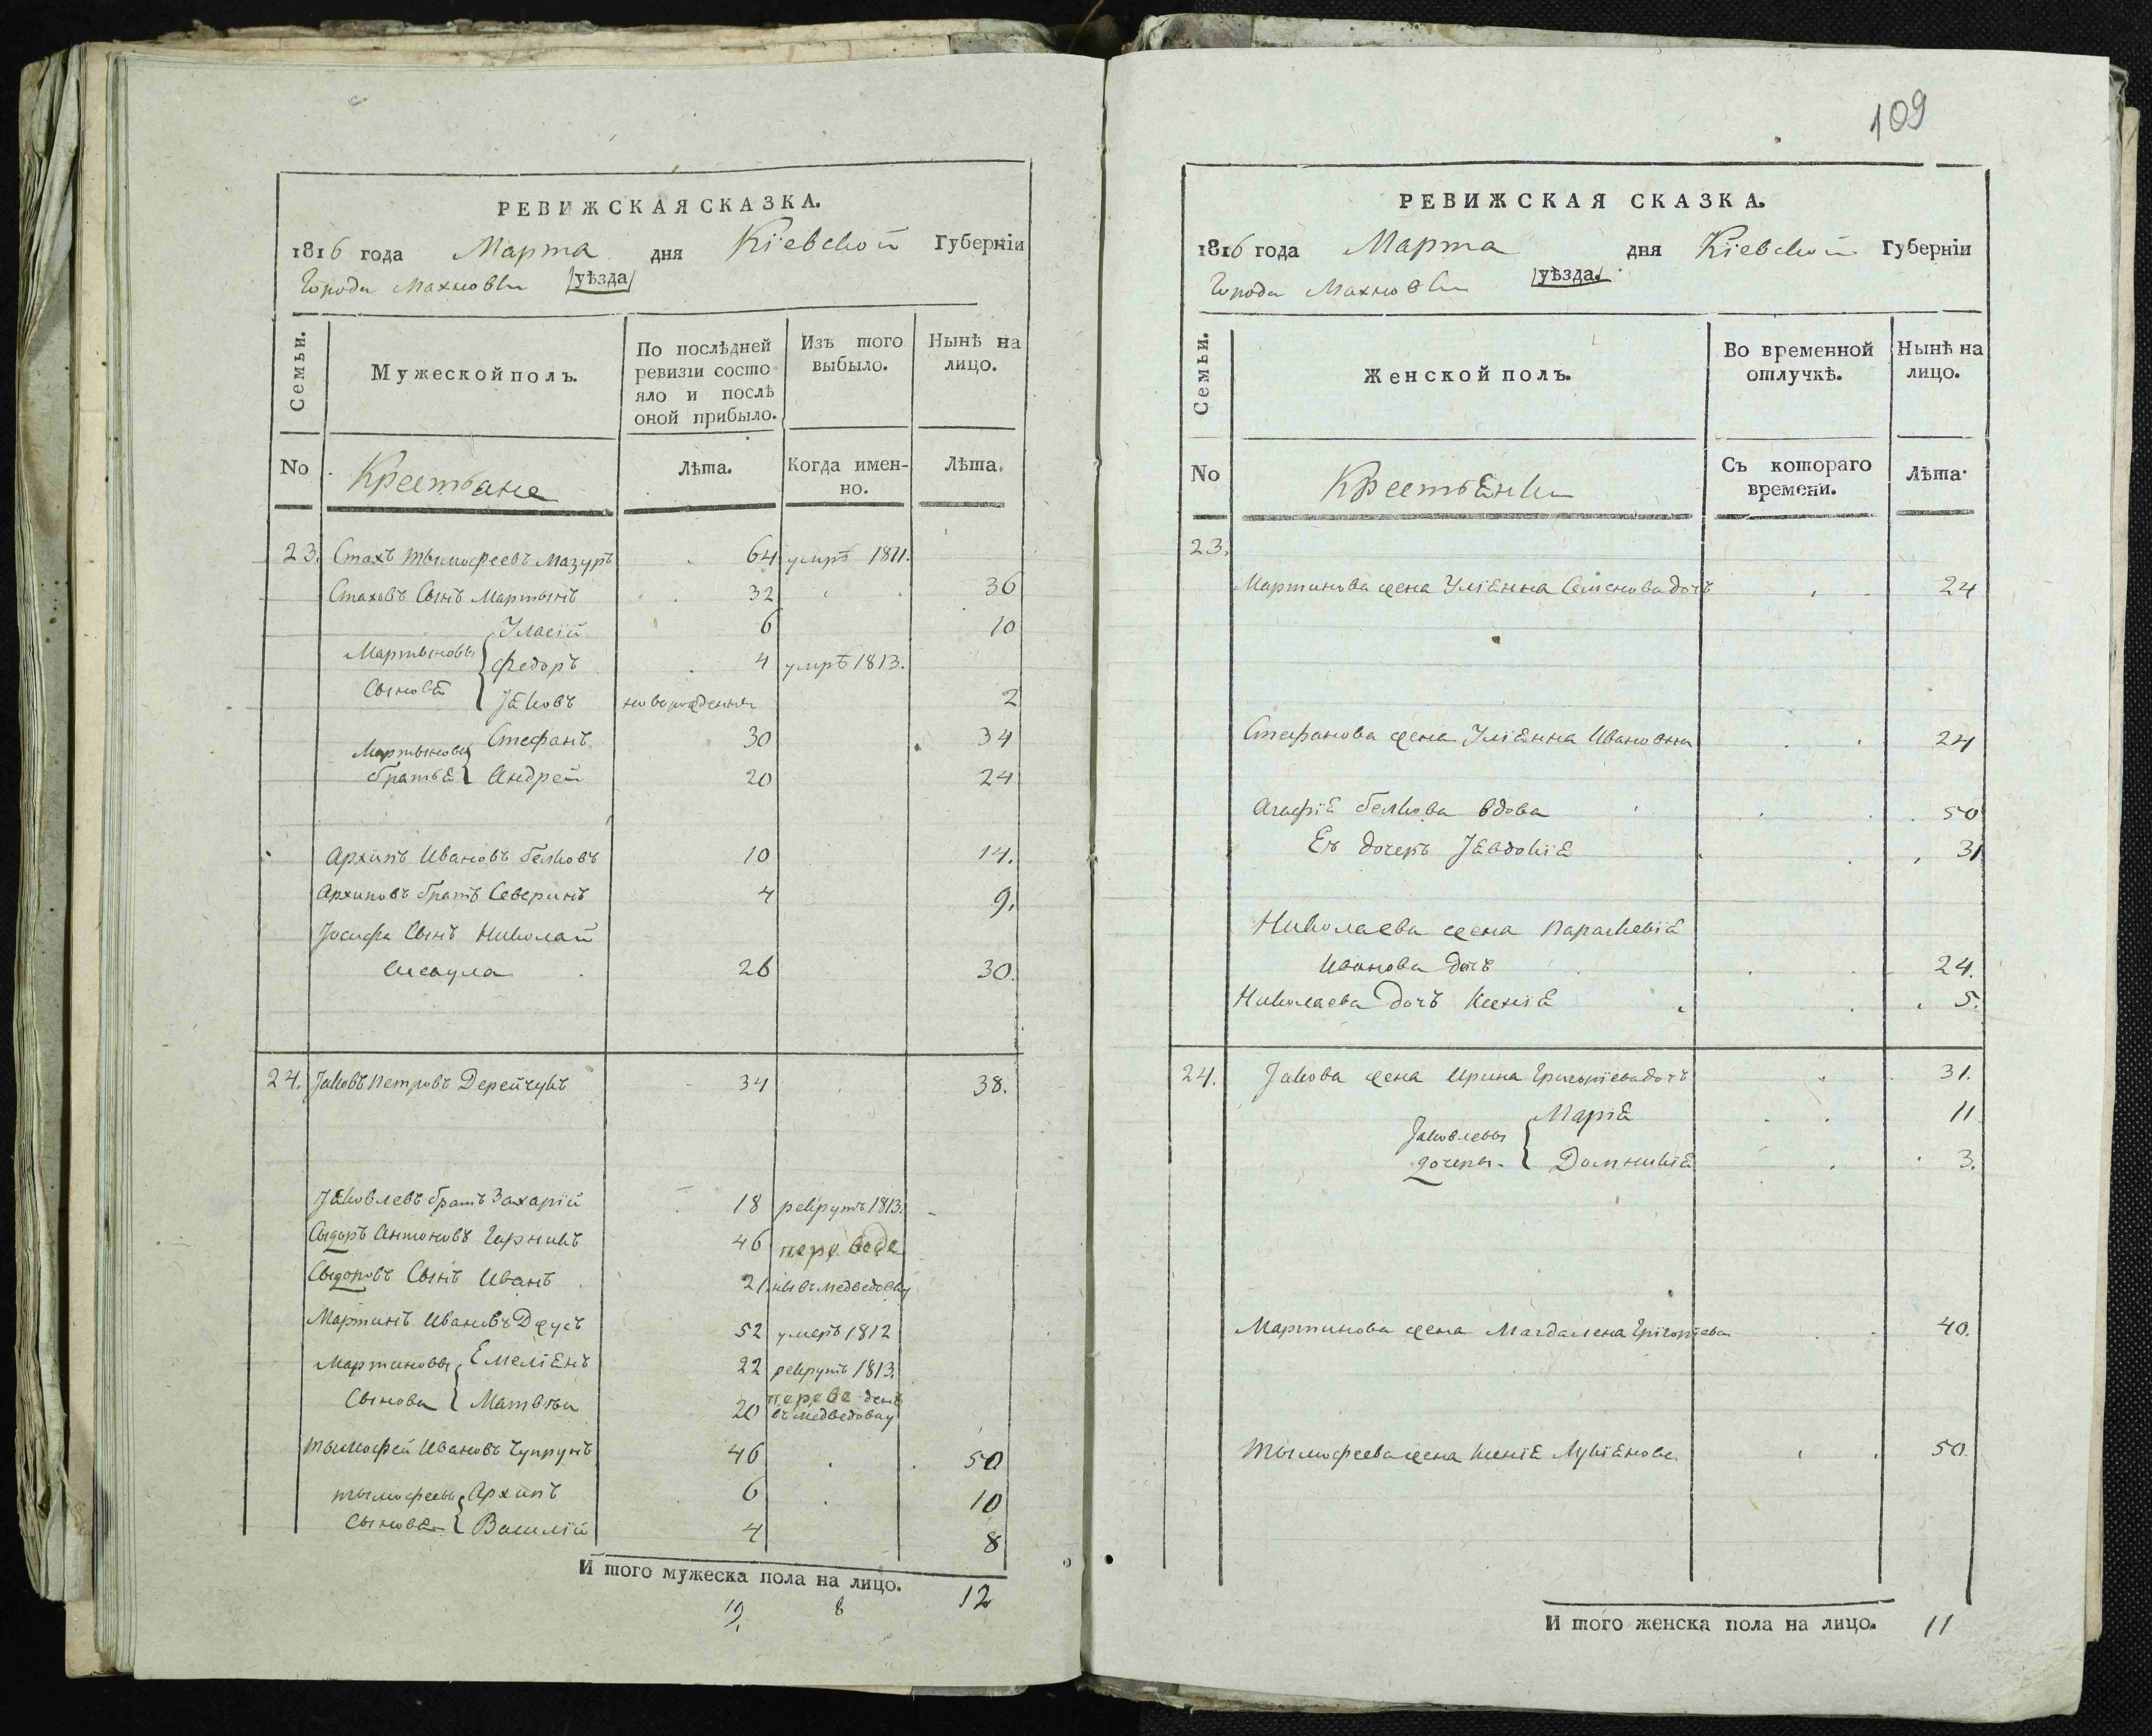 109
РЕВИЖСКАЯ СКАЗКА.
1816 года Марта дня Кіевской Губерніи
Города Махновки уѣзда
Семьи.
Мужеской полъ.
По послѣдней ревизіи состояло и послѣ оной прибыло.
Изъ того выбыло.
Нынѣ на лицо.
No
Крестьане
Лѣта.
Когда именно.
Лѣта.
23. Стахъ Тымофеевъ Мазуръ 64 умрѣ 1811.
Стаховъ Сынъ Мартынъ 32 36
Мартыновы Сыновя
Уласій 6 10
Федоръ 4 умрѣ 1813.
Яковъ новорожденны 2
Мартыновы братья
Стефанъ 30 34
Андрей 20 24
Архипъ Ивановъ Белковъ 10 14.
Архиповъ братъ Северинъ 4 9.
Іосифа Сынъ Николай
26 30.
24. Яковъ Петровъ Дерейчукъ 34 38.
Яковлевъ братъ Захарій 18 рекрутъ 1813.
Сыдоръ Антоновъ Гарникъ 46 переведе
Сыдоровъ Сынъ Иванъ 21 ны въ Медведовку
Мартинъ Ивановъ Джусъ 52 умеръ 1812
Мартиновы Сынова
Емеліянъ 22 рекрутъ 1813.
Матвѣи 20 переведенъ въ Медведовку
Тымофей Ивановъ Чупрунъ 46 50
Тымофеевы Сыновя
Архипъ 6 10
Василій 4 8
И того мужеска пола на лицо. 12
19. 8
РЕВИЖСКАЯ СКАЗКА.
1816 года Марта дня Кіевской Губерніи
Города Махновки уѣзда.
Семьи.
Женской полъ.
Во временной отлучкѣ.
Нынѣ на лицо.
No
Крестьянки
Съ котораго времени.
Лѣта.
23.
Мартинова жена Уліянна Семенова дочъ 24
Стефанова жена Уліянна Ивановна 24
Агафія Белкова вдова 50
Еѣ дочеръ Явдокія 31
Николаева жена Параскевія
Иванова дочъ 24.
Николаева дочъ Ксенія 5.
24. Якова жена Ирина Григоріева дочъ 31.
Яковлевы дочеры
Марія 11
Домникія 3.
Мартинова жена Магдалена Григоріева 40.
Тымофеева жена Ксенія Лукіянова 50.
И того женска пола на лицо. 11